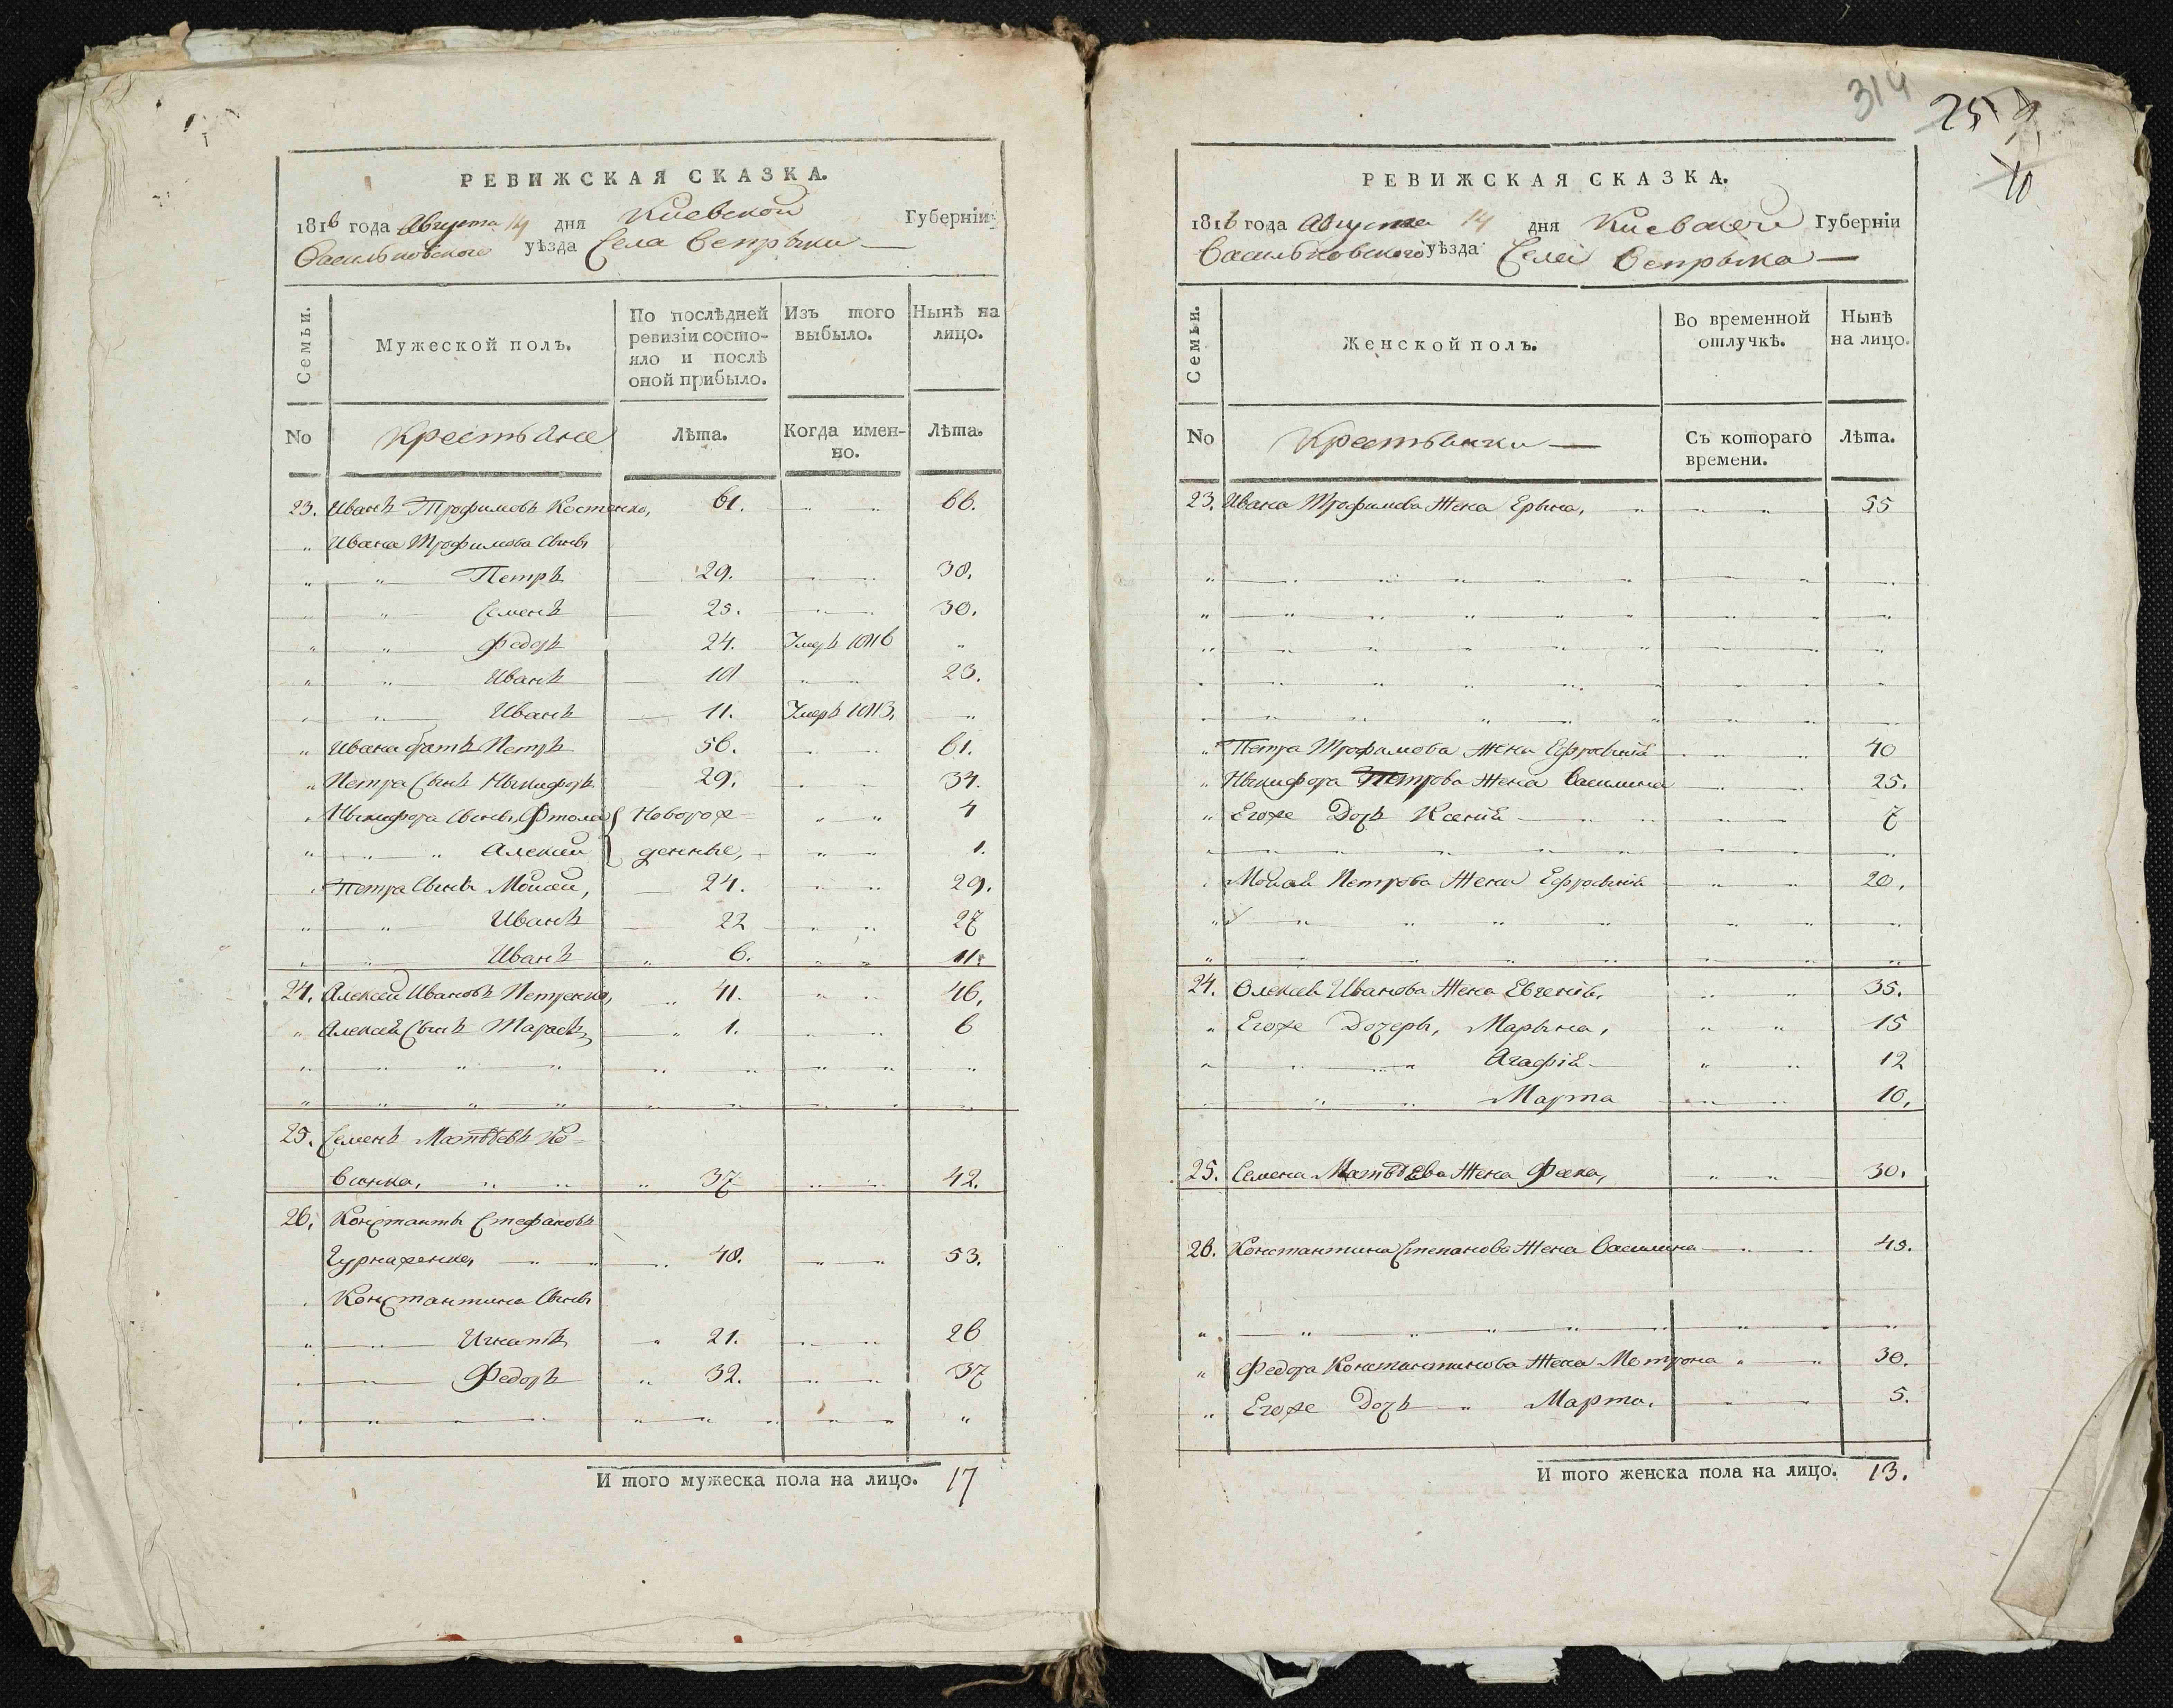 РЕВИЖСКАЯ СКАЗКА.
1816 года Августа 14 дня Киевской Губерніи
Васильковского уѣзда Села Вепрыка
Семьи.
Мужеской полъ.
По послѣдней ревизіи состояло и послѣ оной прибыло.
Изъ того выбыло.
Нынѣ на лицо.
No
Крестьяне
Лѣта.
Когда именно.
Лѣта.
23. Иванъ Трофимовъ Костенко, 61. „ „ 66.
„ Ивана Трофимова Сыны
„ „ Петръ 29. „ „ 30.
„ „ Семенъ 25. „ „ 30.
„ „ Федоръ 24. Умеръ 1816 „
„ „ Иванъ 18 „ „ 23.
„ „ Иванъ 11. Умеръ 1813, „
„ Ивана братъ Петръ 56. „ „ 61.
„ Петра Сынъ Никифоръ 29. „ „ 34.
„ Никифора Сыны, Новорож- „ „ 4
„ „ „ Алексей денные, „ „ 1.
„ Петра Сынъ Мойсей, 24. „ „ 29.
„ „ Иванъ 22 „ „ 27
„ „ Иванъ „ 6. „ „ 11.
24. Алексей Ивановъ Петренко, „ 41. „ „ 46.
„ Алексея Сынъ Тарасъ, „ 1. „ „ 6
25. Семенъ Матвѣевъ Ко-
„ „ „ 37 „ „ 42.
26. Константъ Стефановъ
„ „ „ 48. „ „ 53.
„ Константина Сыны
„ Игнатъ „ 21. „ „ 26
„ Федоръ „ 32. „ „ 37
И того мужеска пола на лицо. 17
314
25
10
РЕВИЖСКАЯ СКАЗКА.
1816 года Августа 14 дня Киевской Губерніи
Васильковского уѣзда Села Вепрыка
Семьи.
Женской полъ.
Во временной отлучкѣ.
Нынѣ на лицо.
No
Крестьянки
Съ котораго времени.
Лѣта.
23. Ивана Трофимова Жена Ерына, „ „ 55
„ Петра Трофимова Жена Ефросинія „ „ 40
„ Никифора Петрова Жена Василина „ „ 25.
„ Егоже Дочь Ксенія „ „ 7
„ Мойсея Петрова Жена Ефросинія „ „ 20.
24. Олексея Иванова Жена Евгенія, „ „ 35.
„ Егоже Дочеры, Марына, „ „ 15
„ „ „ Агафія „ „ 12
„ „ „ Марта „ „ 10.
25. Семена Матвѣева Жена Фекла, „ „ 30.
26. Константина Степанова Жена Василина „ „ 45.
„ Федора Константинова Жена Мотрона „ „ 30.
„ Егоже Дочь „ Марта. „ „ 5.
И того женска пола на лицо. 13.